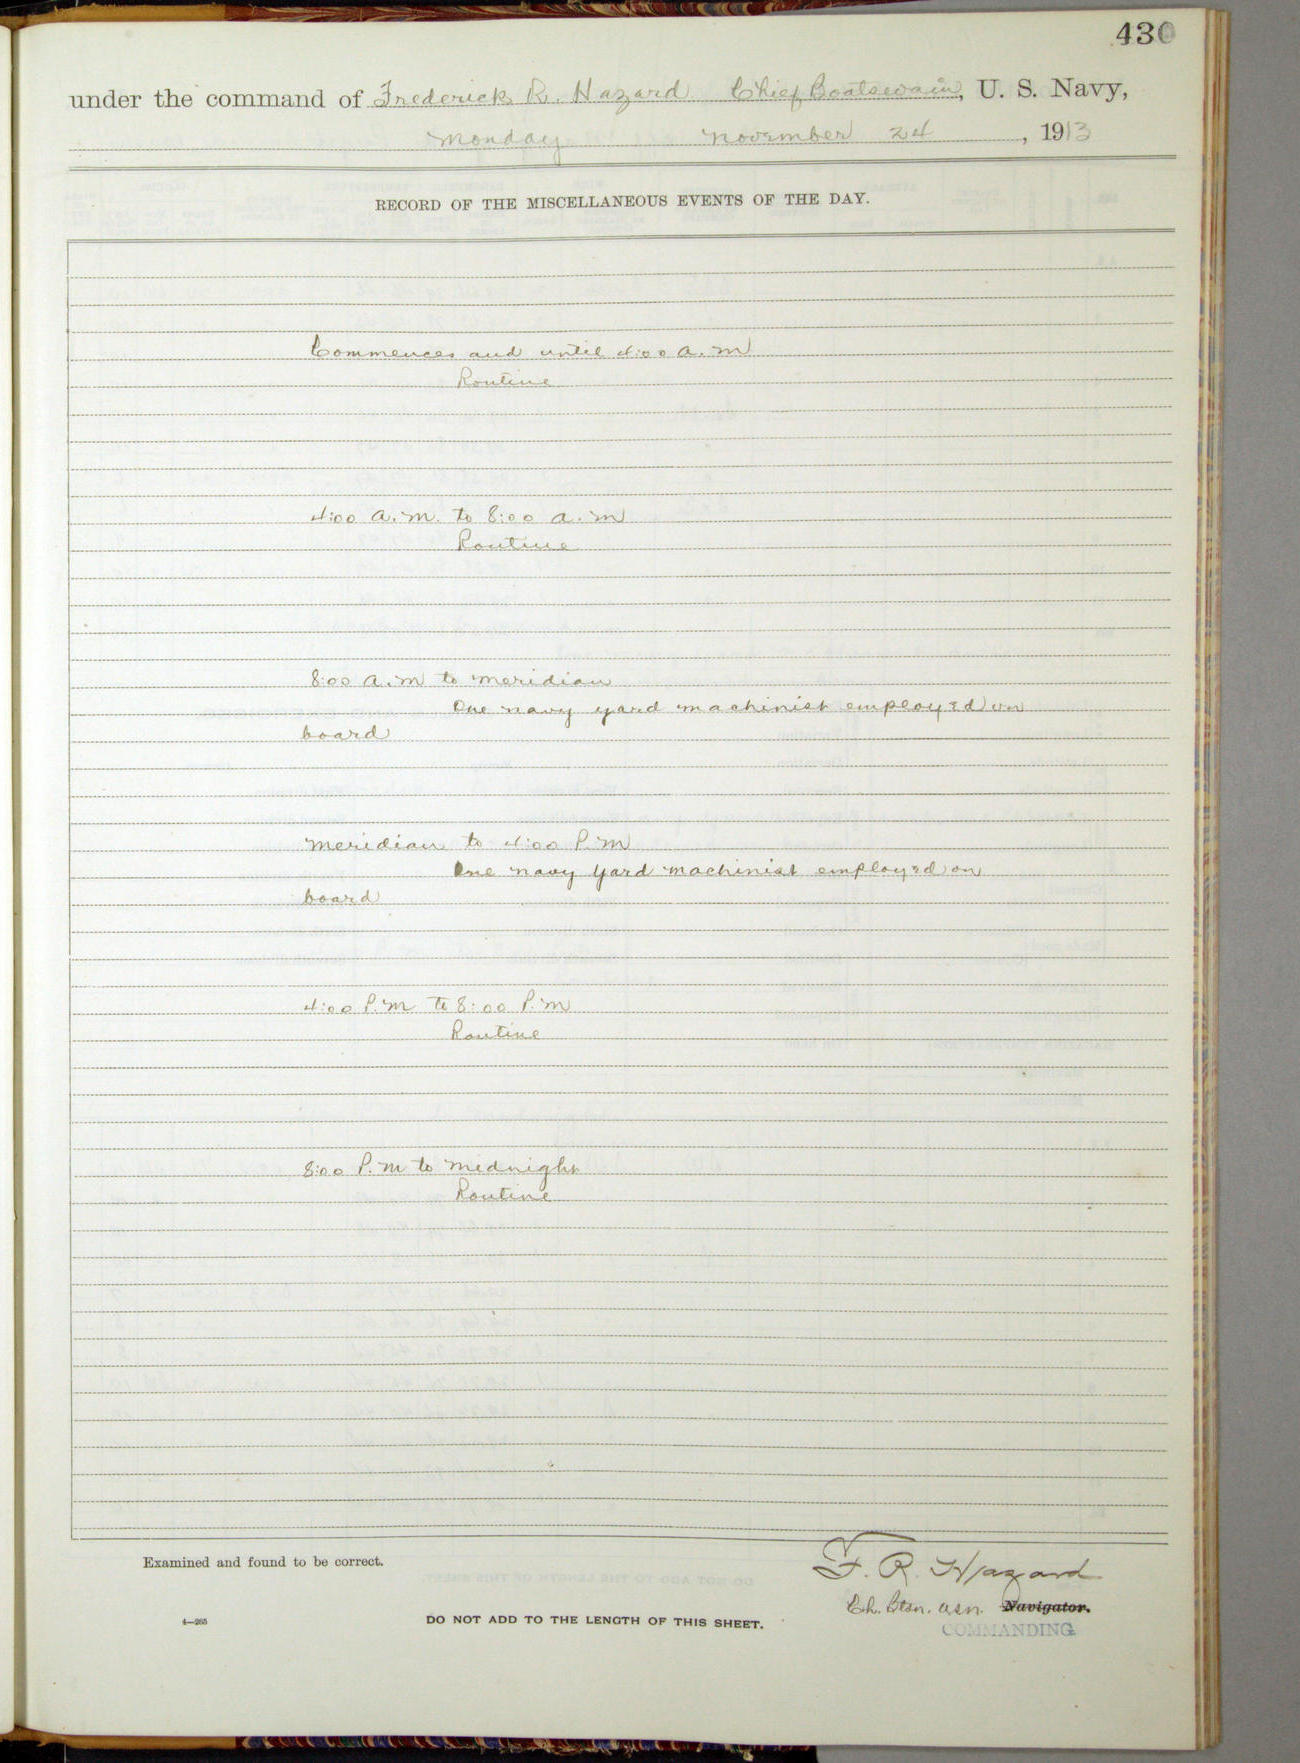 430
under the command of Frederick R. Hazard Chief Boatswain, U. S. Navy,
Monday November 24, 1913
RECORD OF THE MISCELLANEOUS EVENTS OF THE DAY.
Commences and until 4:00 a.m
Routine
4:00 a.m. to 8:00 a.m
Routine
8:00 a.m to meridian
One navy yard machinist employed on
board
Meridian to 4:00 P.M
One navy yard machinist employed on
board
4:00 P.M to 8:00 P.M
Routine
8:00 P.M to Midnight
Routine
Examined and found to be correct.
F. R. Hazard
Ch. Btsn. USN. Navigator.
COMMANDING
4—265
DO NOT ADD TO THE LENGTH OF THIS SHEET.